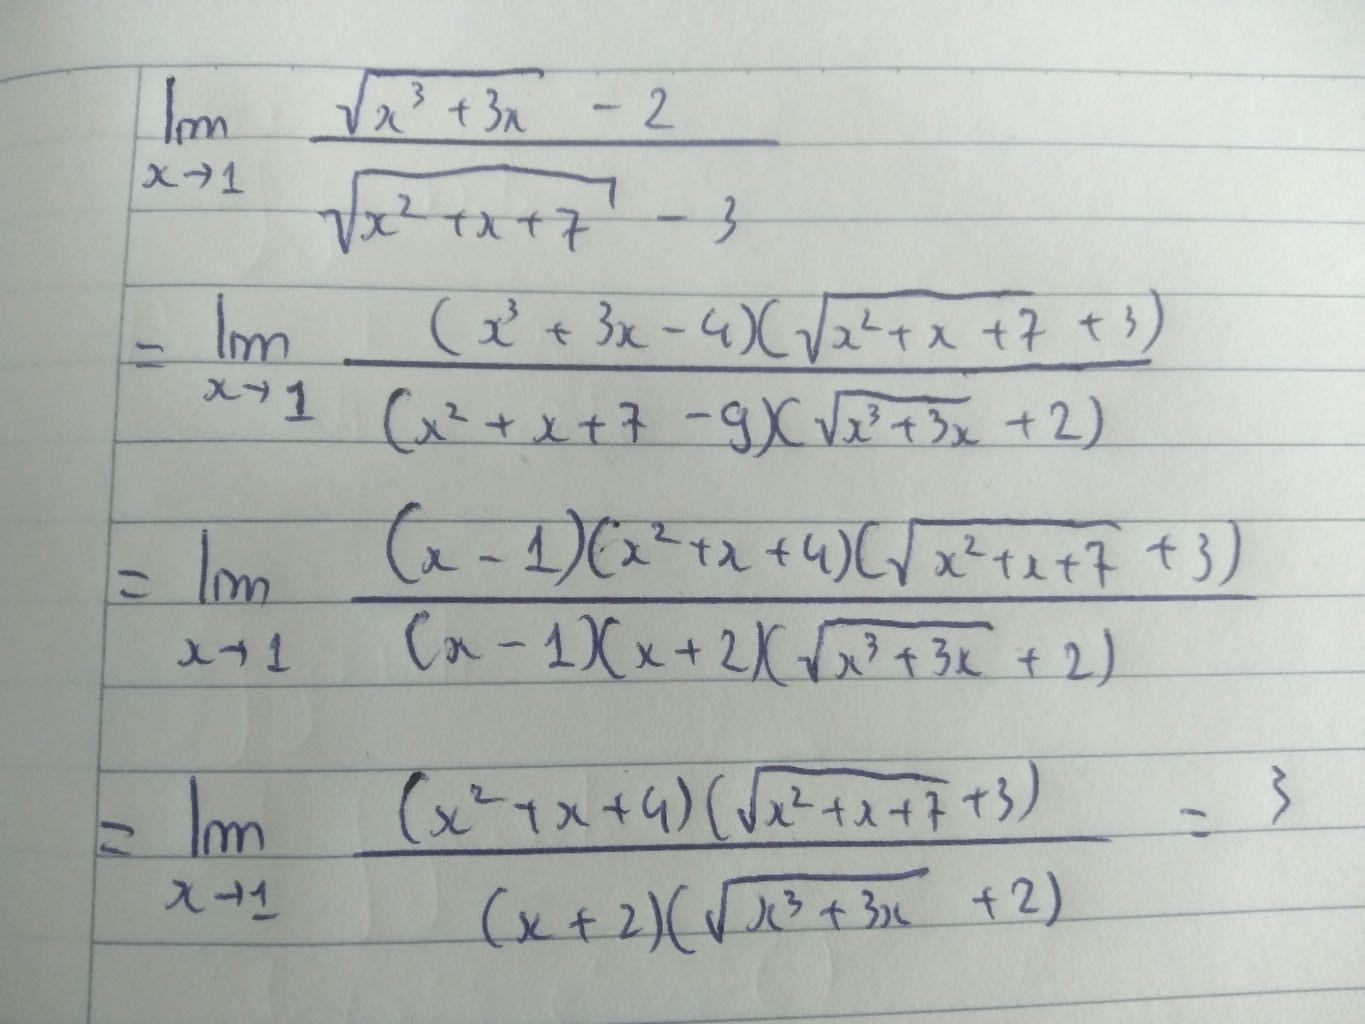 lim x→1 (√(x³ + 3x) - 2) / (√(x² + x + 7) - 3)
= lim x→1 ((x³ + 3x - 4)(√(x² + x + 7) + 3)) / ((x² + x + 7 - 9)(√(x³ + 3x) + 2))
= lim x→1 ((x - 1)(x² + x + 4)(√(x² + x + 7) + 3)) / ((x - 1)(x + 2)(√(x³ + 3x) + 2))
= lim x→1 ((x² + x + 4)(√(x² + x + 7) + 3)) / ((x + 2)(√(x³ + 3x) + 2)) = 3